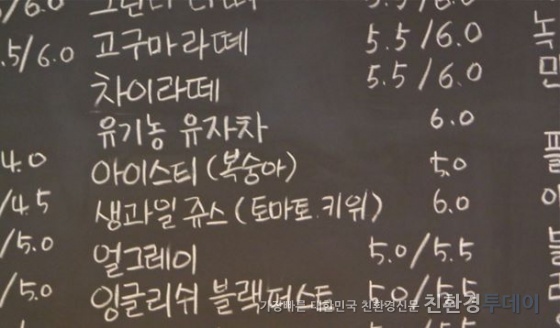 고구마라떼 5.5/6.0
.5/6.0
차이라떼 5.5/6.0
유기농 유자차 6.0
4.0 아이스티(복숭아) 5.0
/4.5 생과일 쥬스(토마토.키위) 6.0
/5.0 얼그레이 5.0/5.5
/5.0 잉글리쉬 블랙퍼스트 5.0/5.5
가장빠른 대한민국 친환경신문 친환경투데이